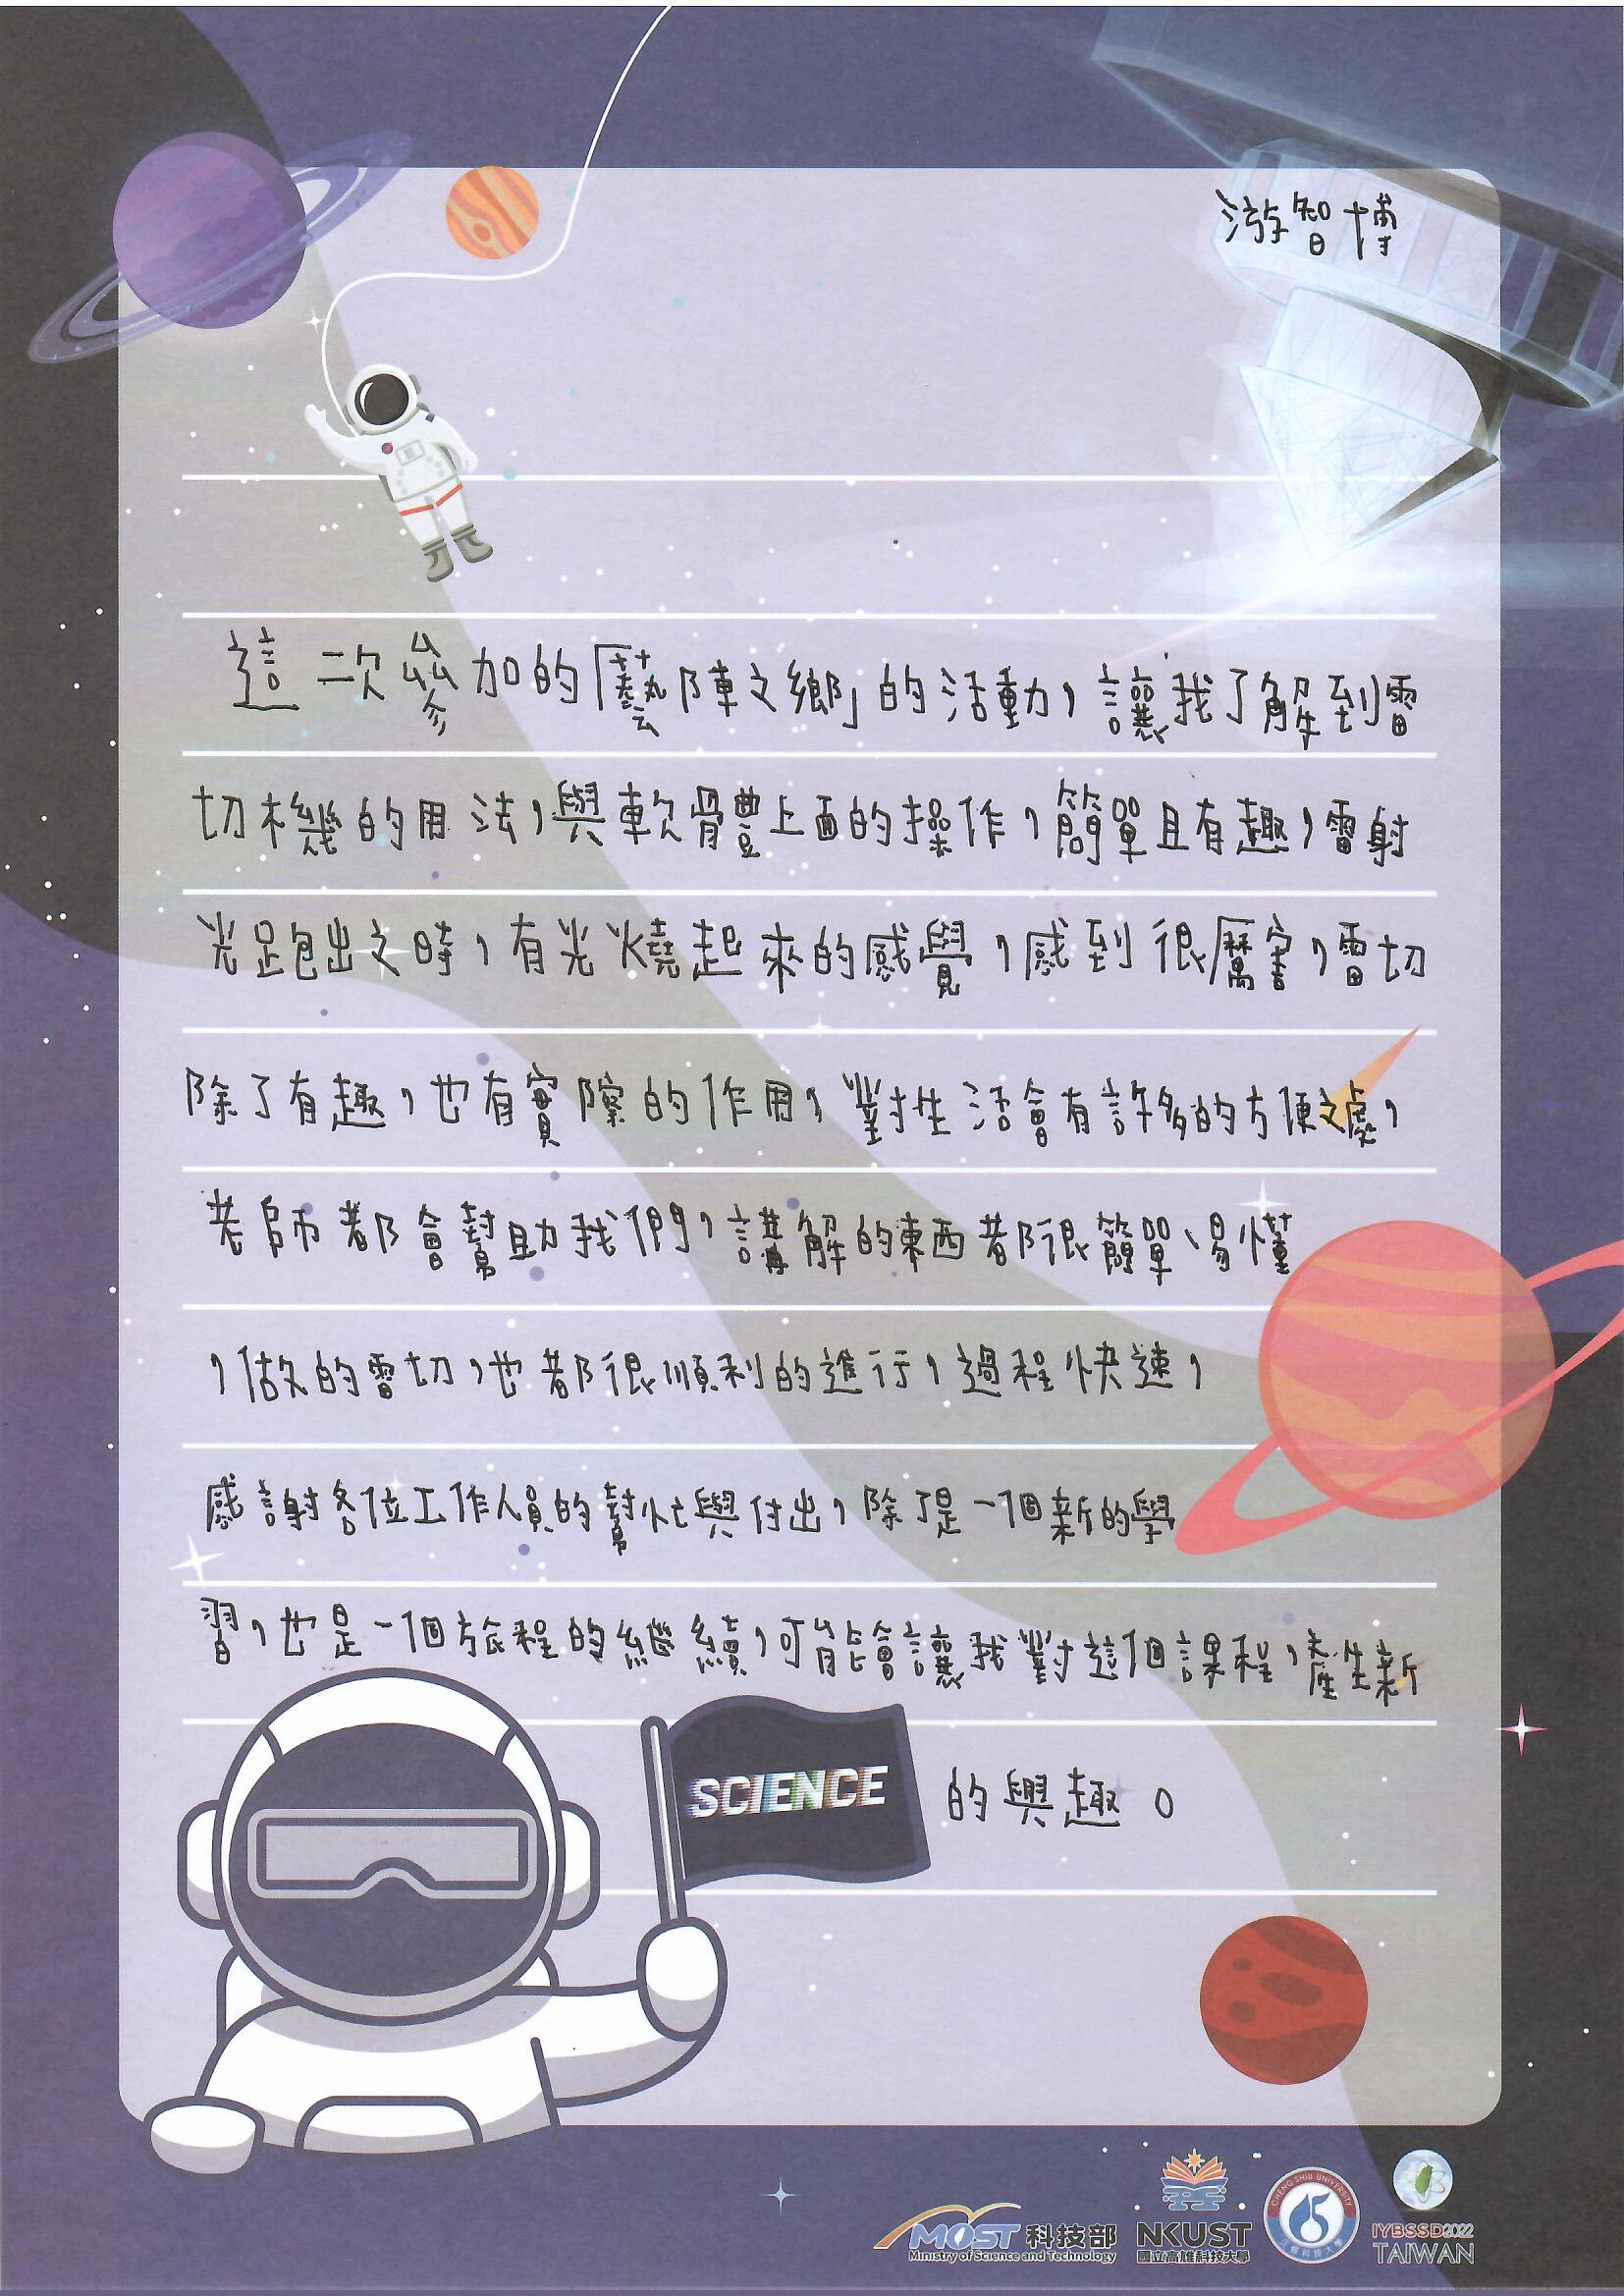 游智博
這二次參加的「藝陣之鄉」的活動，讓我了解到雷
切機的用法，與軟體上面的操作，簡單且有趣，雷射
光跑出之時，有光燒起來的感覺，感到很厲害，雷切
除了有趣，也有實際的作用，對生活會有許多的方便之處，
老師都會幫助我們，講解的東西都很簡單、易懂
，做的雷切，也都很順利的進行，過程快速，
感謝各位工作人員的幫忙與付出，除了是一個新的學
習，也是一個旅程的繼續，可能會讓我對這個課程，產生新
SCIENCE
的興趣。
MOST 科技部
Ministry of Science and Technology
NKUST
國立高雄科技大學
CHENG SHIU UNIVERSITY
正修科技大學
IYBSSD2022
TAIWAN